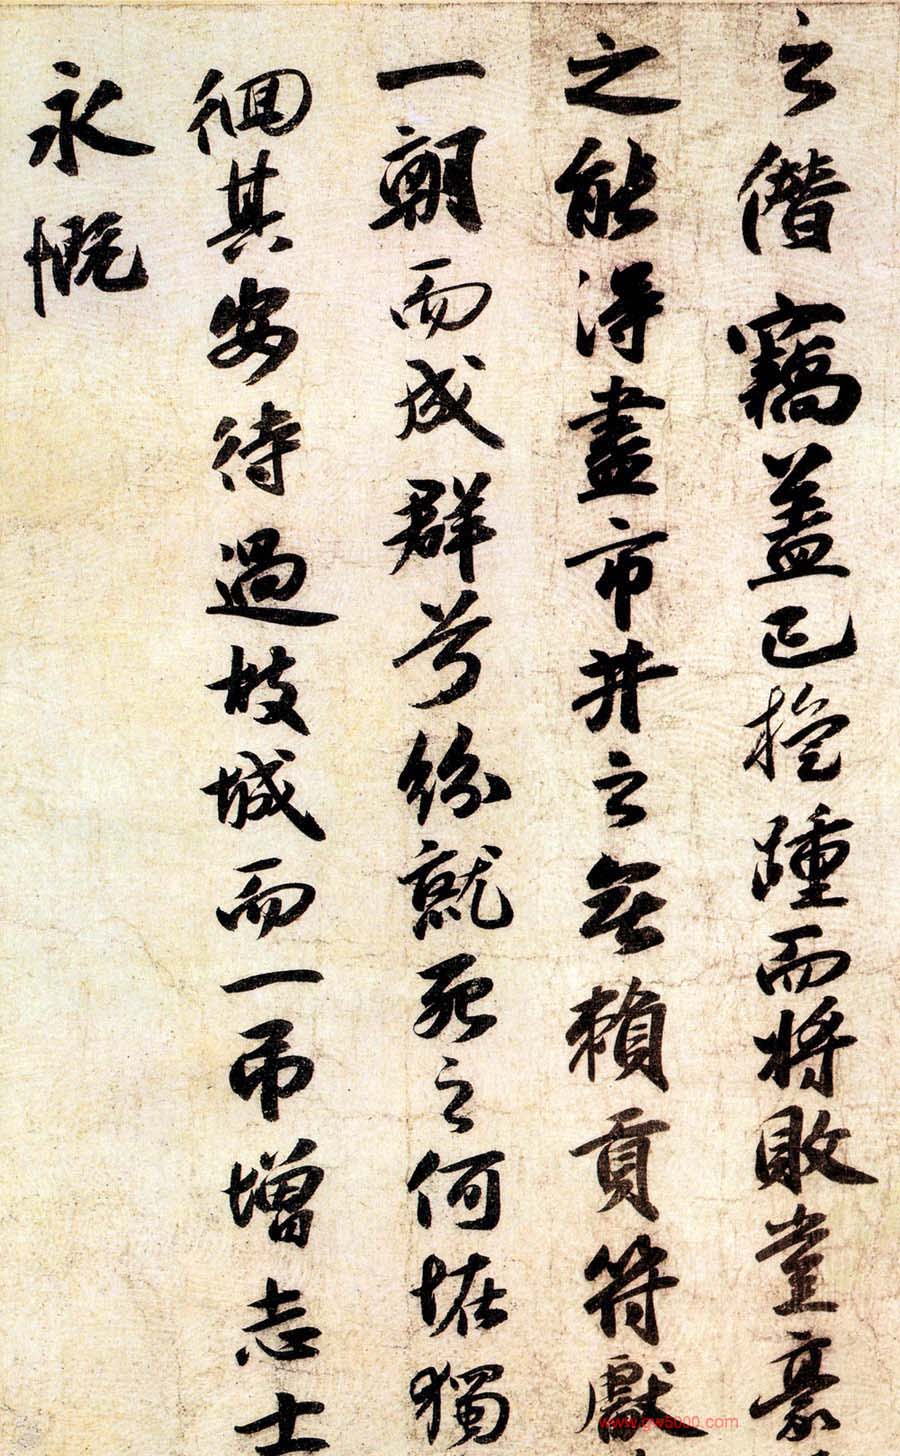 之僭竊蓋已旋踵而將敗豈豪
之能得盡市井之無賴貢符獻
一朝而成群兮紛就死之何怪獨
徊其安待過故城而一弔增志士
永慨